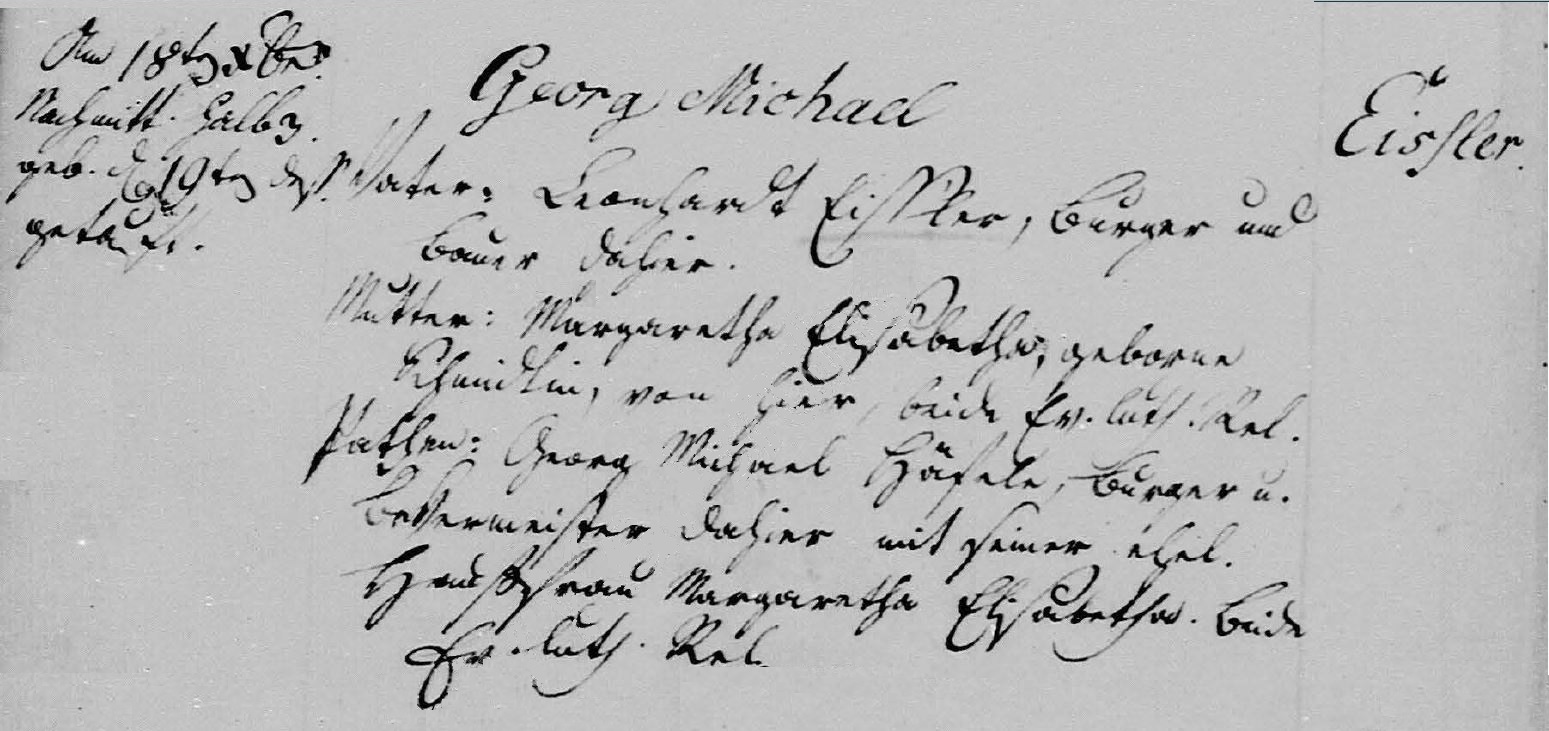 Am 18ten Xber.
Nachmitt. halb 3.
geb. d. 19ten dss.
getauft.
Georg Michael
Eissler.
Vater: Leonhardt Eissler, Burger und
Bauer dahier.
Mutter: Margaretha Elisabetha, geborne
Schmidtin, von hier, beide Ev. luth. Rel.
Pathen: Georg Michael Häfele, Burger u.
dahier mit seiner ehel.
Haussfrau Margaretha Elisabetha. Beide
Ev. luth. Rel.